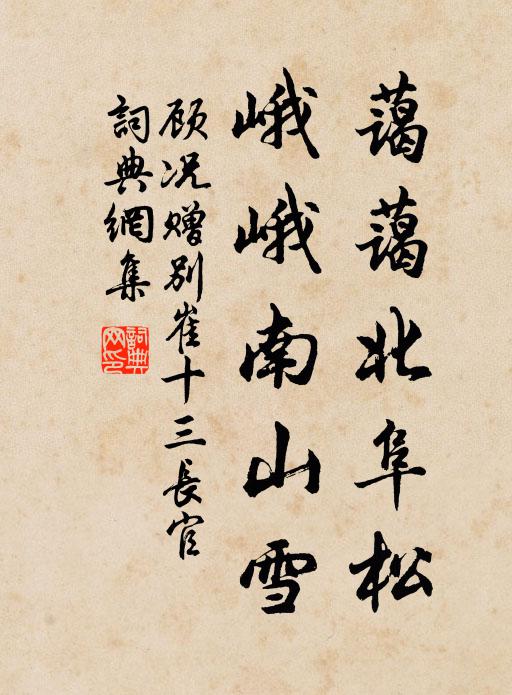 藹藹北阜松
峨峨南山雪
顾况赠别崔十三長官
詞典網集
詞典网印